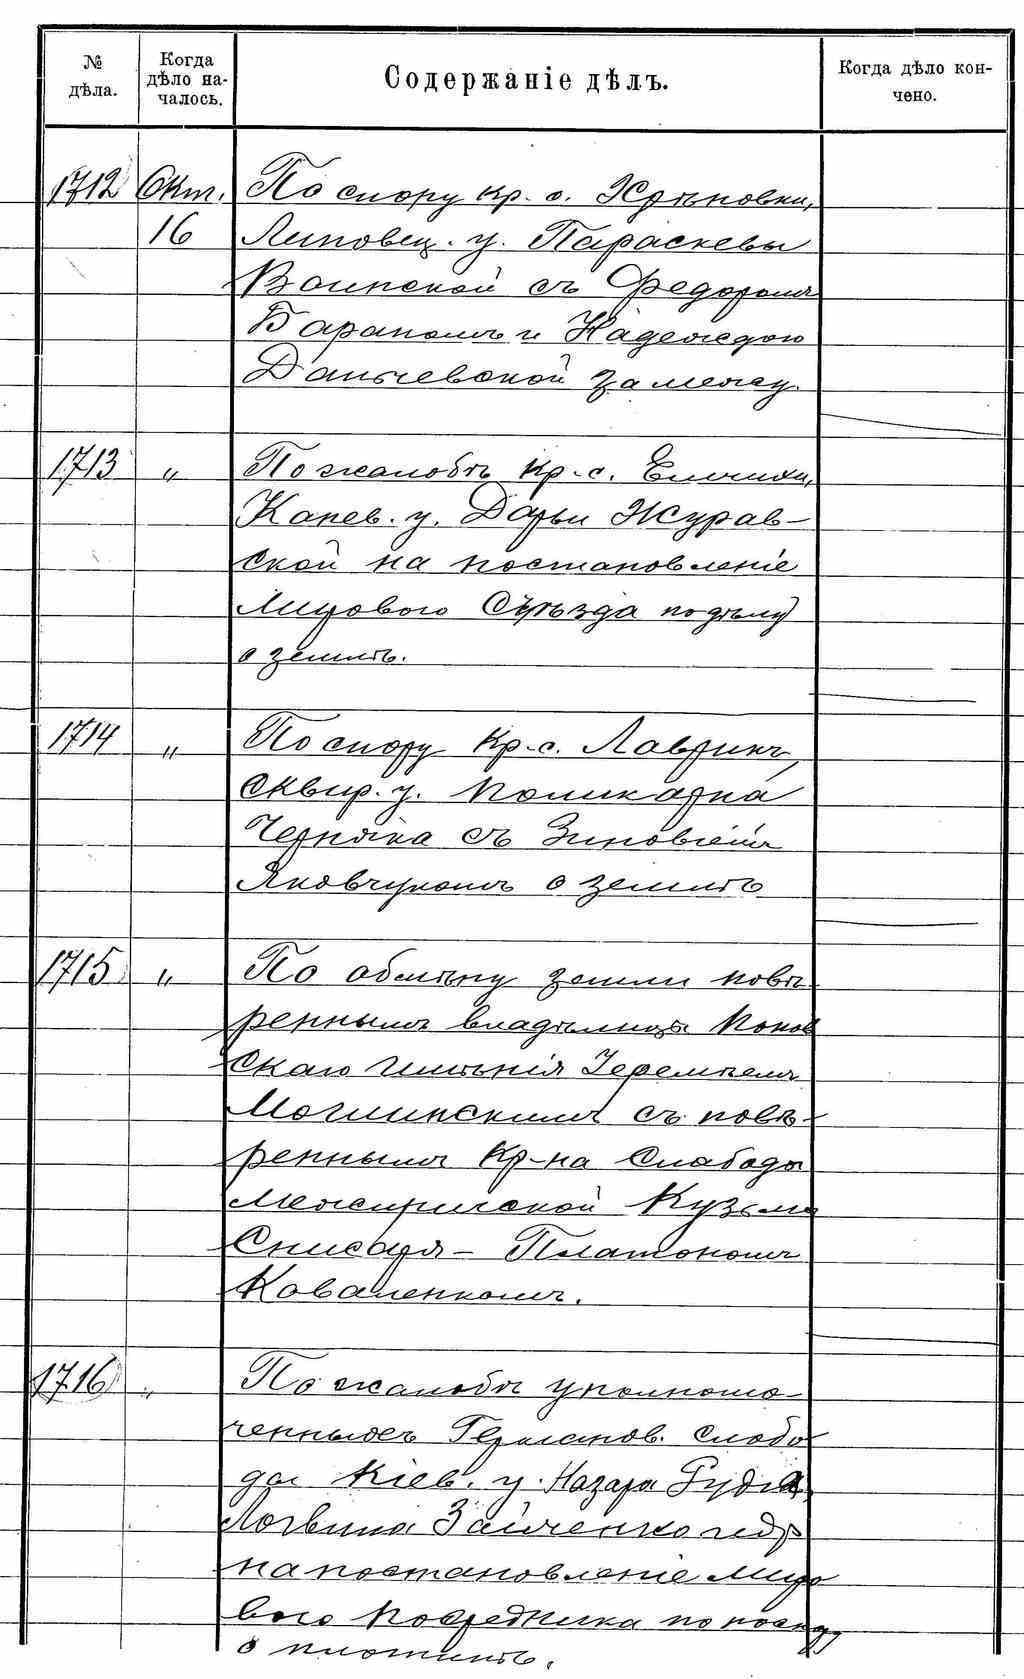 № дѣла.
Когда дѣло началось.
Содержаніе дѣлъ.
Когда дѣло кончено.
1712 Окт. По спору кр. с.
16 Липовец. у. Параскевы
Воинской съ Федоромъ
Бараномъ и Надеждою
Данчевской за межу.
1713 „ По жалобѣ кр. с. Емчихи,
Канев. у. Дарьи Журав-
ской на постановленіе
Мирового Съѣзда по дѣлу
о землѣ.
1714 „ По спору кр. с. Лаврикъ,
Сквир. у. Поликарпа
Черняка съ Зиновіемъ
Яковчукомъ о землѣ
1715 „ По обмѣну земли повѣ-
реннымъ владѣлицы
скаго имѣнія Іереміемъ
Могилинскимъ съ повѣ-
реннымъ кр-на Слободы
Межиричской Кузьмы
Списаря - Платономъ
Коваленкомъ.
1716 „ По жалобѣ уполномо-
ченныхъ Германов. слобо-
ды Кіев. у. Назара
Логвина Зайченко и др
на постановленіе Миро
вого Посредника по иску
о